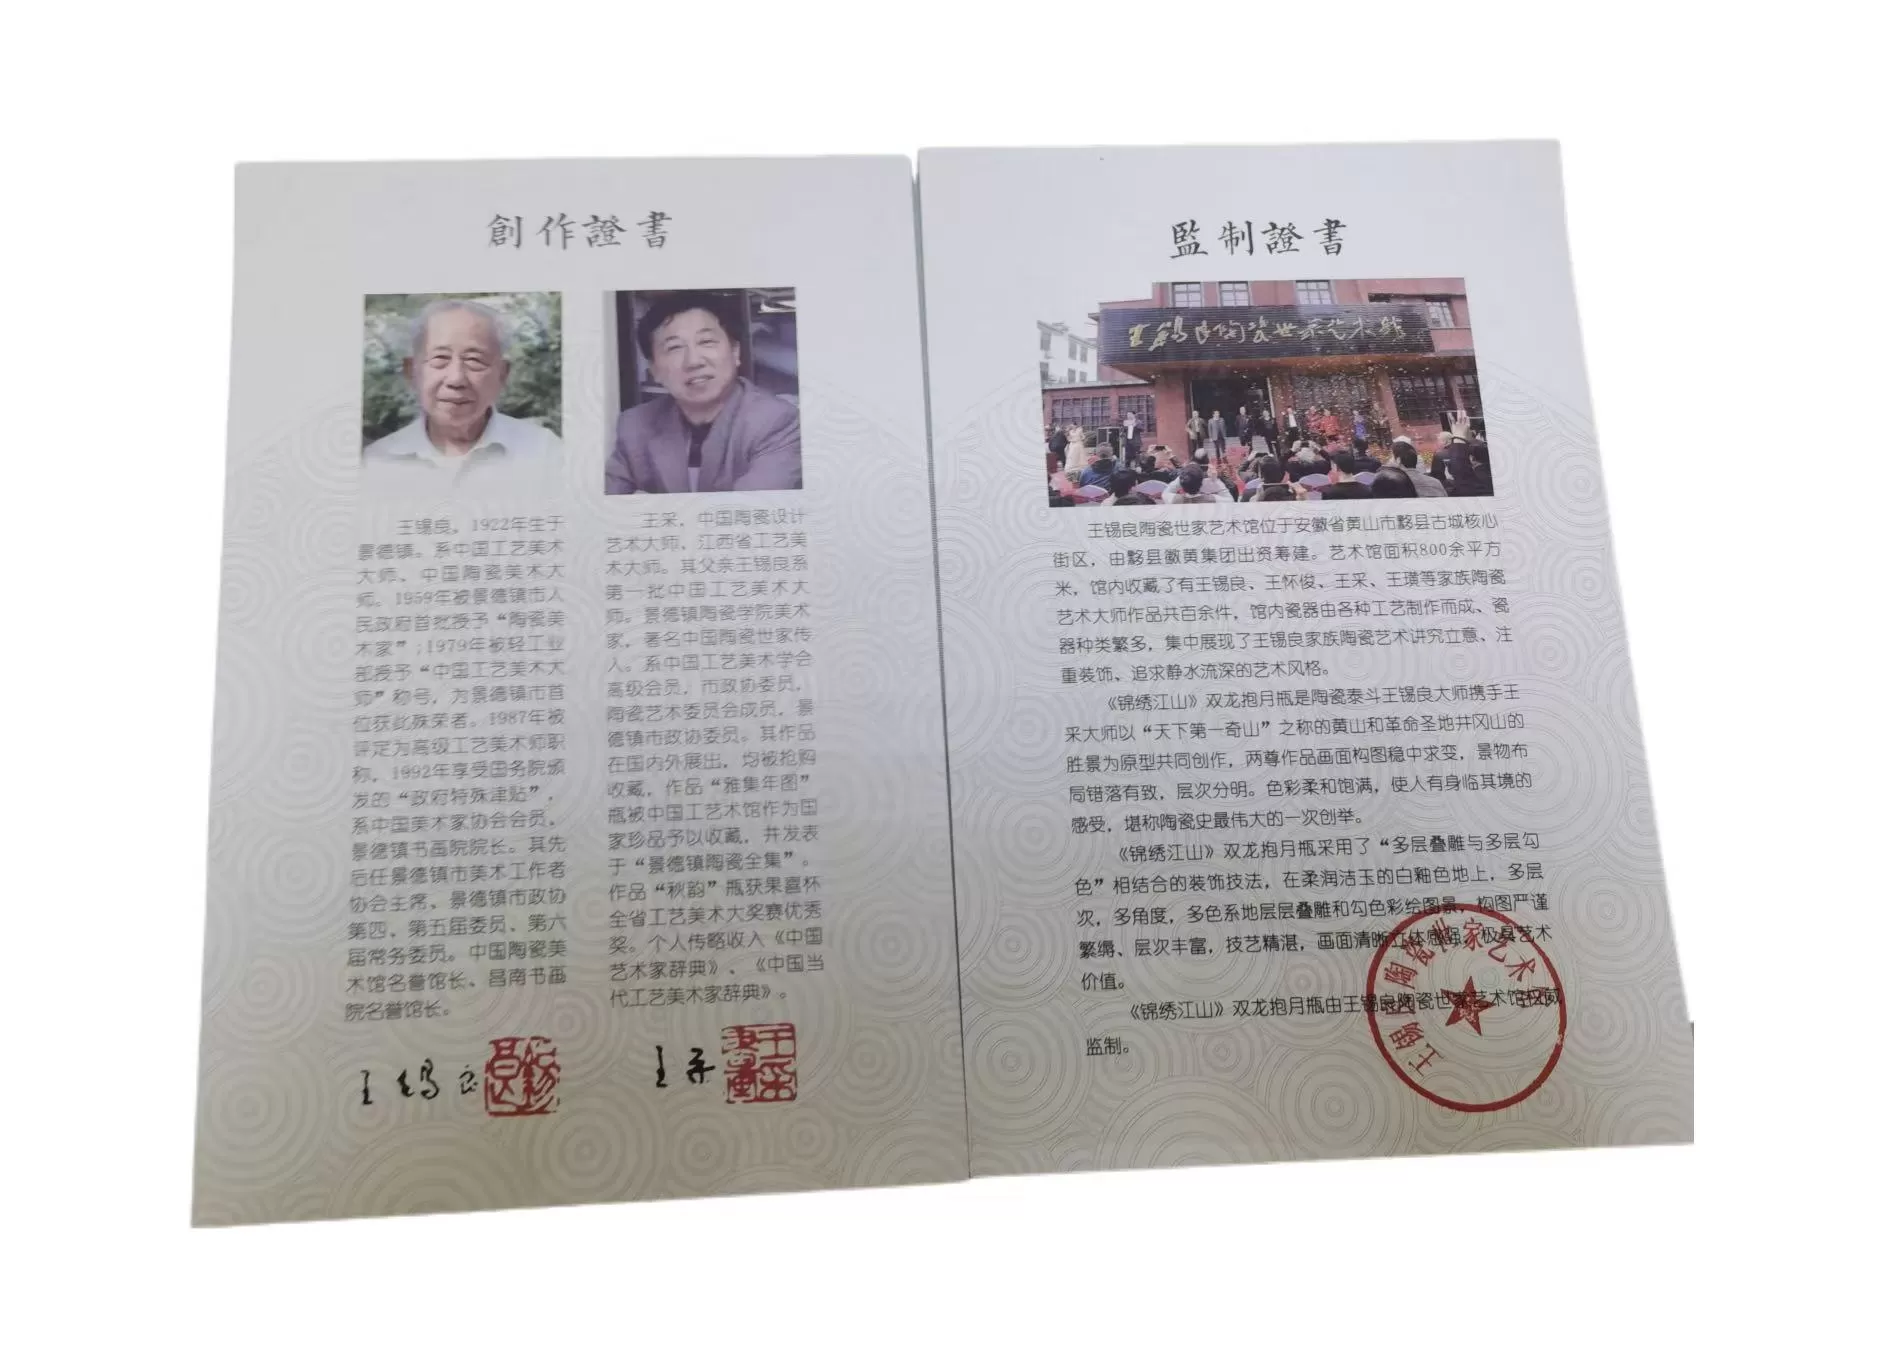 創作證書
王锡良，1922年生于
景德镇。系中国工艺美术
大师、中国陶瓷美术大
师。1959年被景德镇市人
民政府首批授予“陶瓷美
术家”;1979年被轻工业
部授予“中国工艺美术大
师”称号，为景德镇市首
位获此殊荣者。1987年被
评定为高级工艺美术师职
称，1992年享受国务院颁
发的“政府特殊津贴”，
系中国美术家协会会员，
景德镇书画院院长。其先
后任景德镇市美术工作者
协会主席、景德镇市政协
第四、第五届委员、第六
届常务委员。中国陶瓷美
术馆名誉馆长、昌南书画
院名誉馆长。
王锡良
王采，中国陶瓷设计
艺术大师，江西省工艺美
术大师。其父亲王锡良系
第一批中国工艺美术大
师。景德镇陶瓷学院美术
家，著名中国陶瓷世家传
人。系中国工艺美术学会
高级会员，市政协委员，
陶瓷艺术委员会成员，景
德镇市政协委员。其作品
在国内外展出，均被抢购
收藏，作品“雅集年图”
瓶被中国工艺术馆作为国
家珍品予以收藏，并发表
于“景德镇陶瓷全集”。
作品“秋韵”瓶获果喜杯
全省工艺美术大奖赛优秀
奖。个人传略收入《中国
艺术家辞典》、《中国当
代工艺美术家辞典》。
王采
王采書畫
監制證書
王錫良陶瓷世家艺术館
王锡良陶瓷世家艺术馆位于安徽省黄山市黟县古城核心
街区，由黟县徽黄集团出资筹建。艺术馆面积800余平方
米，馆内收藏了有王锡良、王怀俊、王采、王璜等家族陶瓷
艺术大师作品共百余件，馆内瓷器由各种工艺制作而成、瓷
器种类繁多，集中展现了王锡良家族陶瓷艺术讲究立意、注
重装饰、追求静水流深的艺术风格。
《锦绣江山》双龙抱月瓶是陶瓷泰斗王锡良大师携手王
采大师以“天下第一奇山”之称的黄山和革命圣地井冈山的
胜景为原型共同创作，两尊作品画面构图稳中求变，景物布
局错落有致，层次分明。色彩柔和饱满，使人有身临其境的
感受，堪称陶瓷史最伟大的一次创举。
《锦绣江山》双龙抱月瓶采用了“多层叠雕与多层勾
色”相结合的装饰技法，在柔润洁玉的白釉色地上，多层
次，多角度，多色系地层层叠雕和勾色彩绘图景，构图严谨
繁缛、层次丰富，技艺精湛，画面清晰立体感强，极具艺术
价值。
《锦绣江山》双龙抱月瓶由王锡良陶瓷世家艺术馆权威
监制。
王锡良陶瓷世家艺术馆